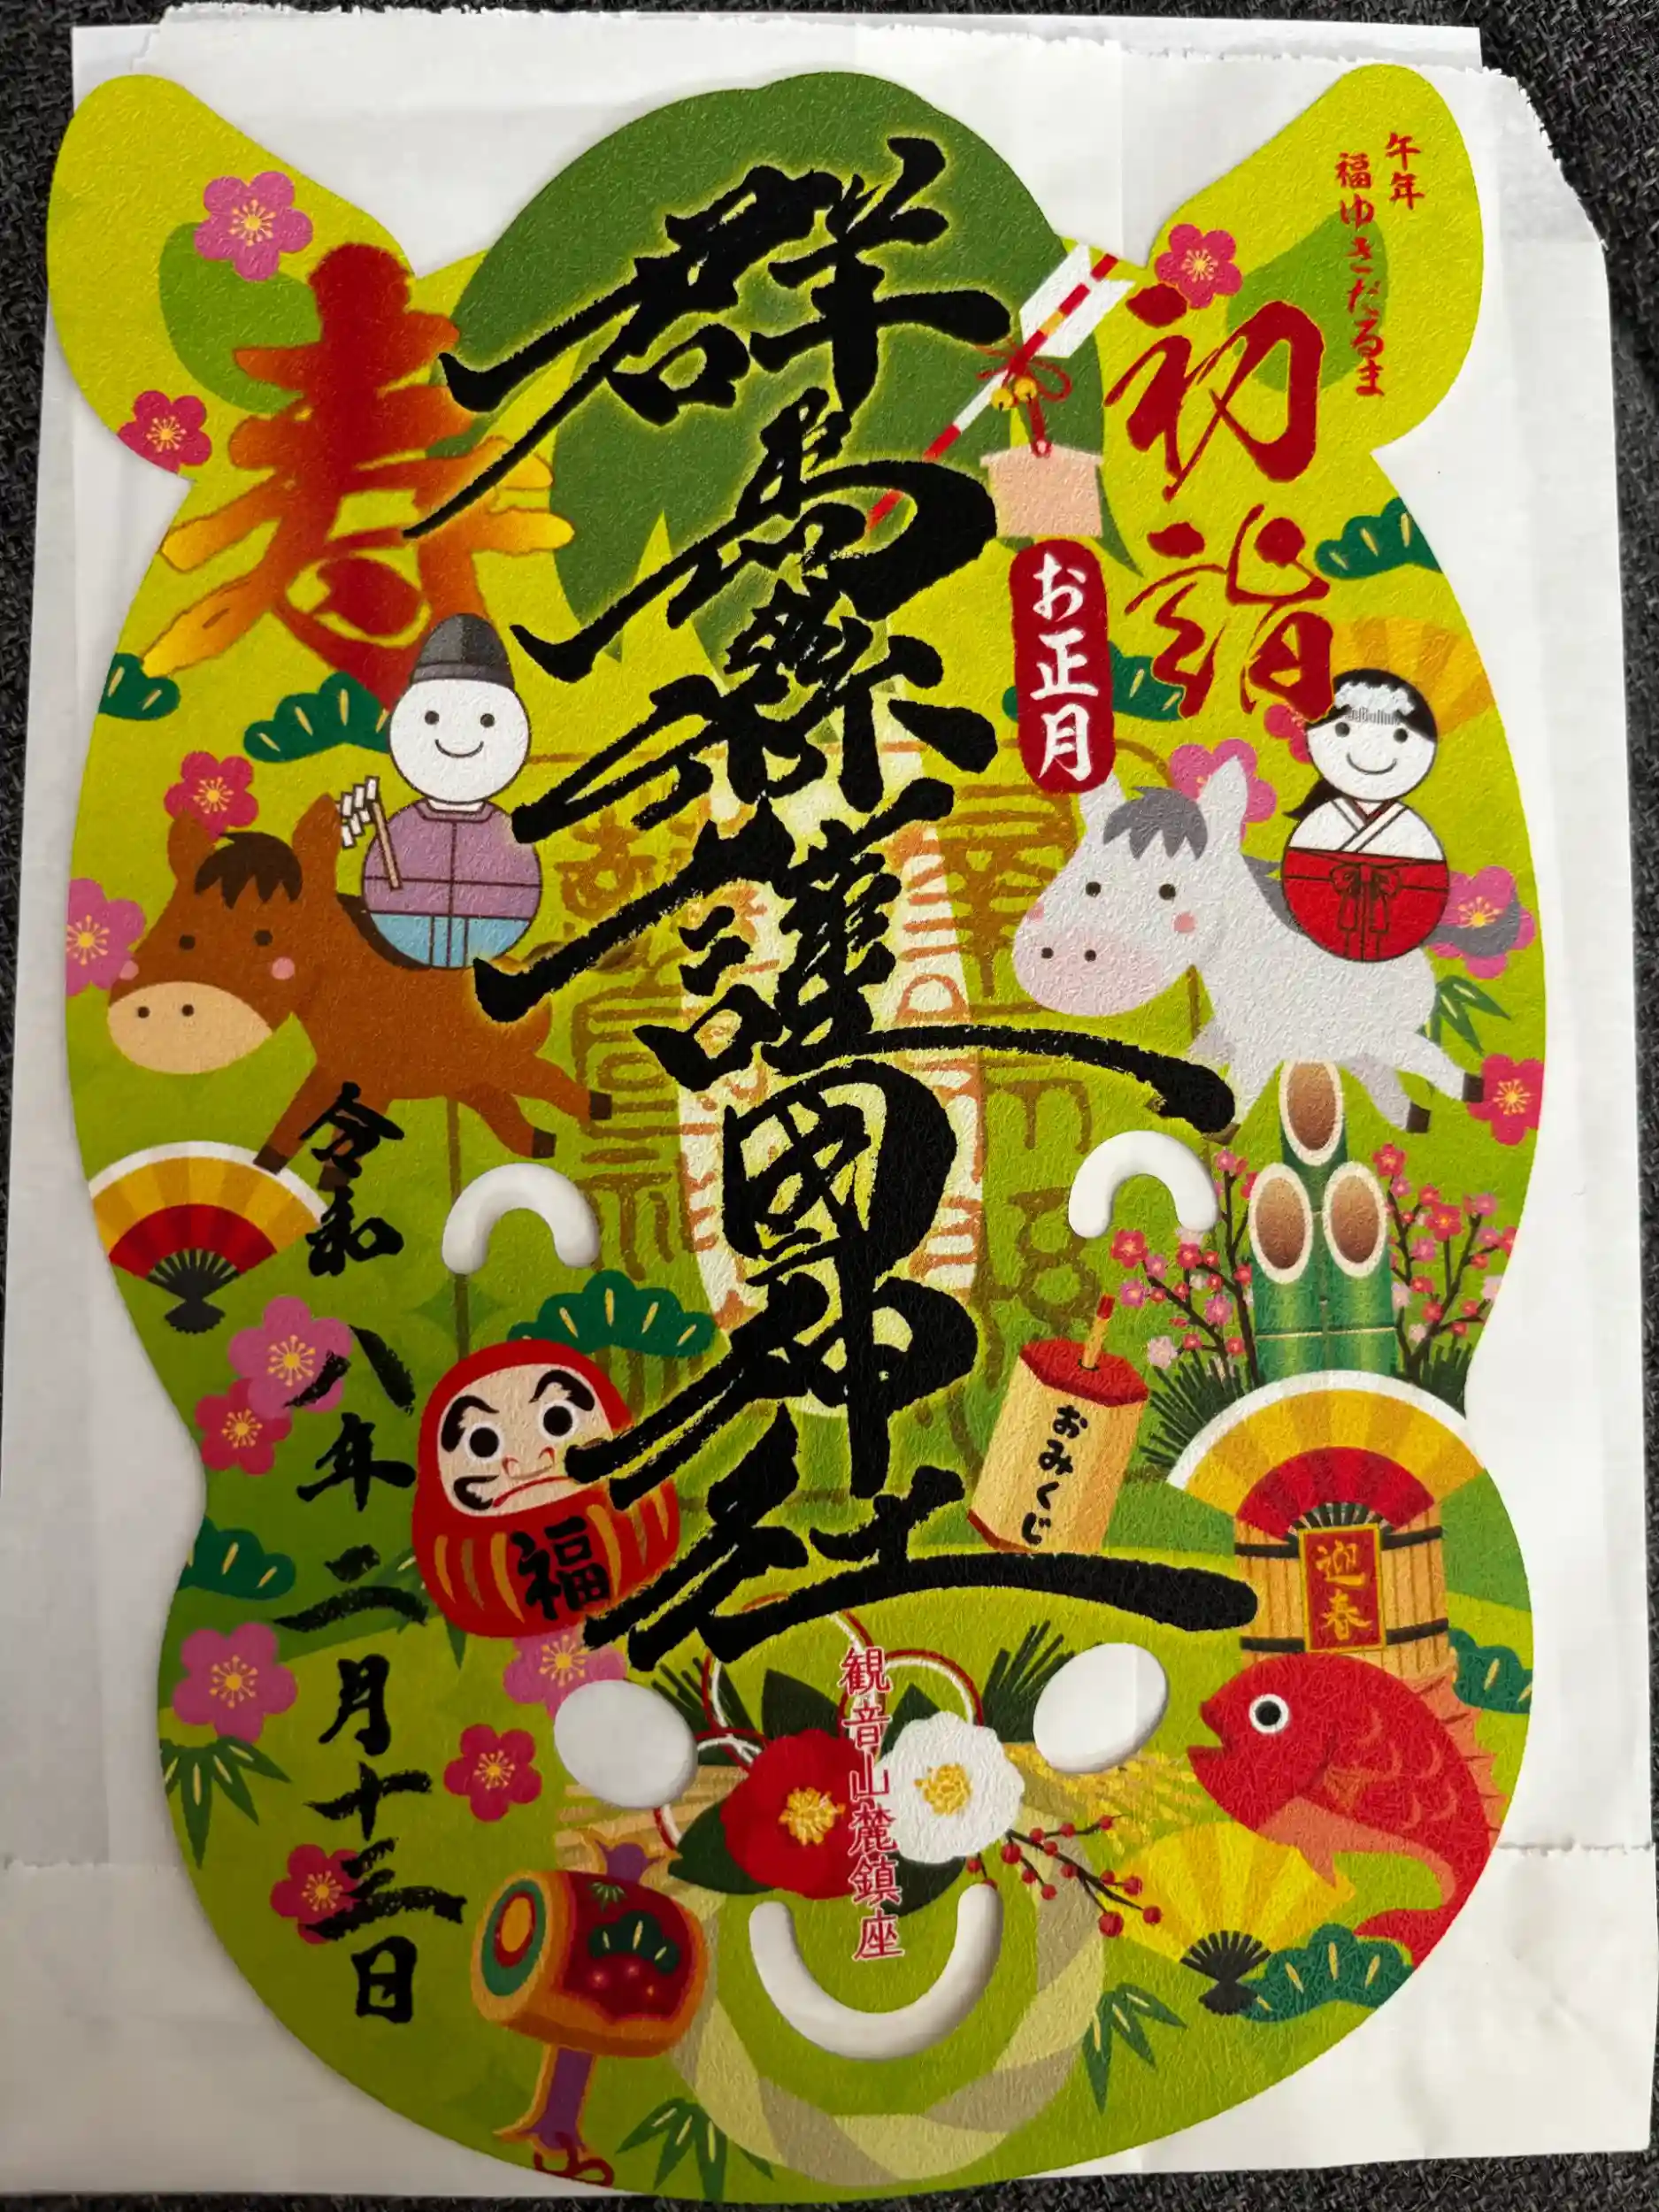 午年
福ゆきだるま
初詣
お正月
群馬縣護國神社
寿
令和八年二月十三日
おみくじ
福
迎春
観音山麓鎮座